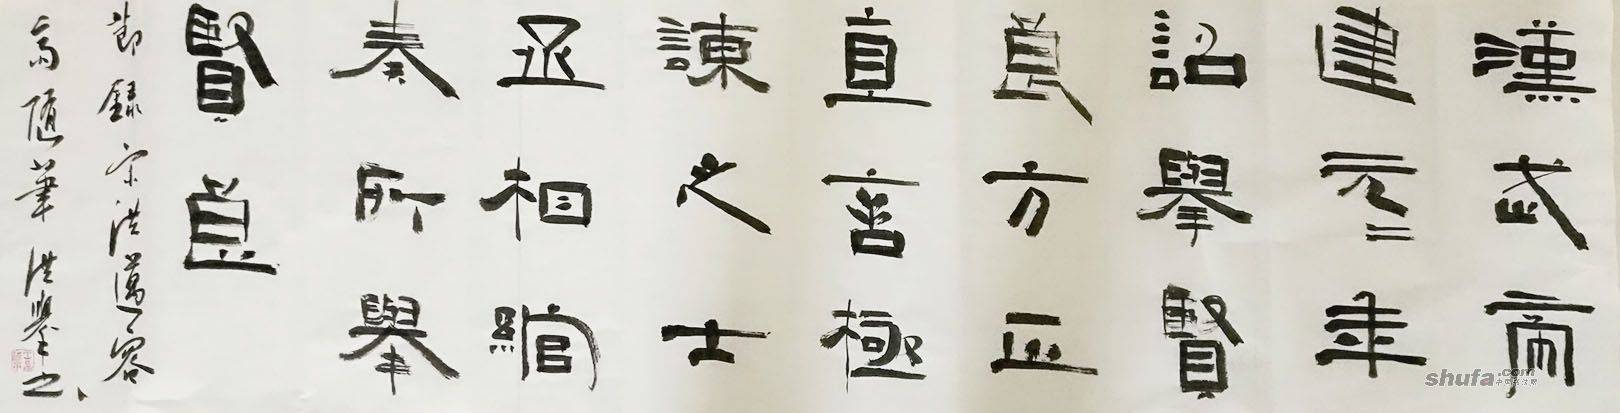 漢武帝
建元年
詔舉賢
良方正
直言極
諫之士
丞相綰
奏所舉
賢良
節錄宋洪邁容
齋隨筆 洪舉書
shufa.com